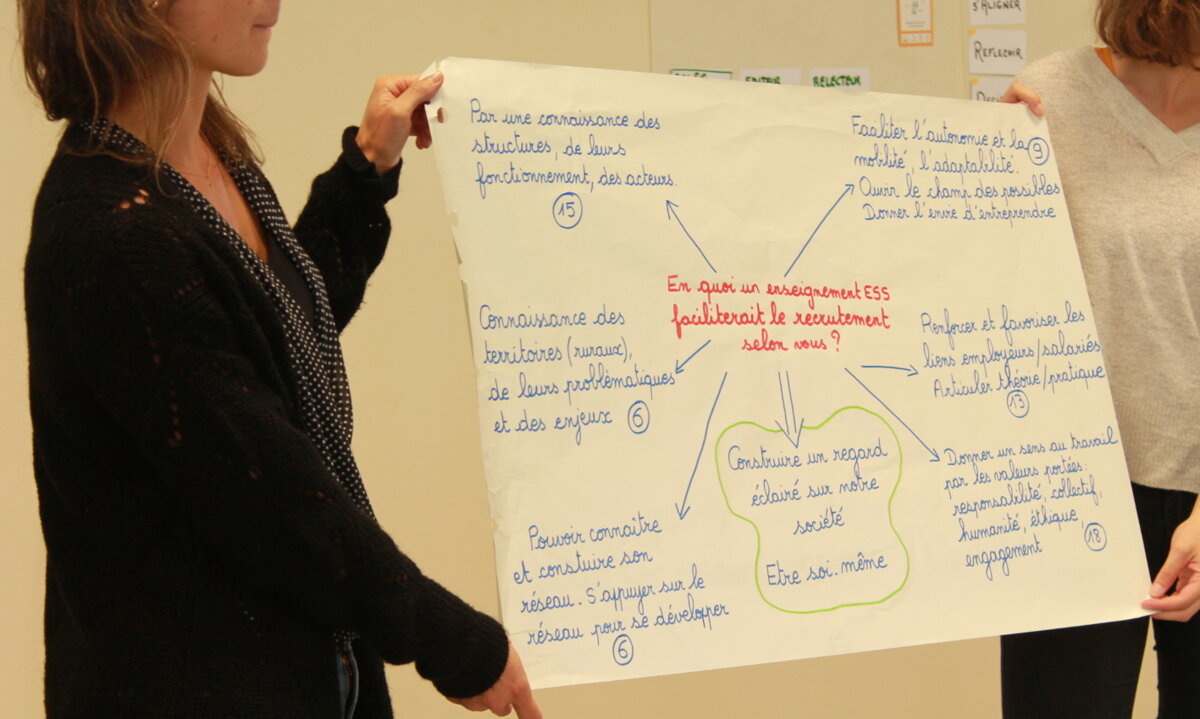 S'ALIGNER
REFLECHIR
RELECTEUR
Par une connaissance des
structures, de leurs
fonctionnement, des acteurs.
15
Faciliter l'autonomie et la
mobilité, l'adaptabilité.
9
Ouvrir le champ des possibles
Donner l'envie d'entreprendre
En quoi un enseignement ESS
faciliterait le recrutement
selon vous ?
Connaissance des
territoires (ruraux),
de leurs problèmatiques
et des enjeux
6
Renforcer et favoriser les
liens employeurs/salariés
Articuler théorie/pratique
13
Construire un regard
éclairé sur notre
société
Etre soi-même
Donner un sens au travail
par les valeurs portées:
responsabilité, collectif,
humanité, éthique,
engagement
18
Pouvoir connaître
et constuire son
réseau. S'appuyer sur le
réseau pour se développer
6